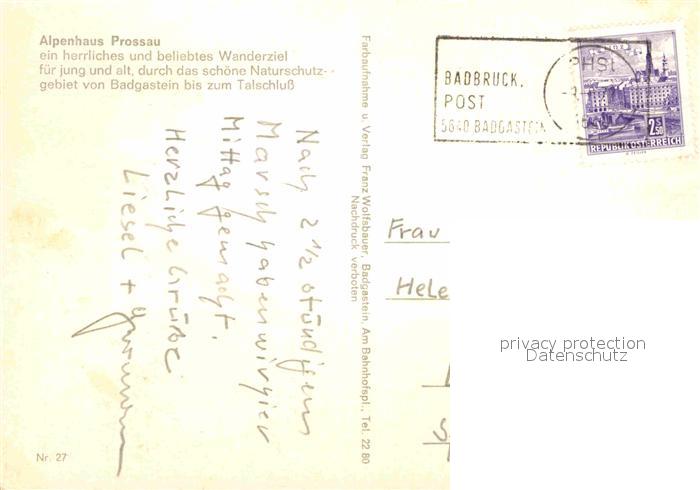 Alpenhaus Prossau
ein herrliches und beliebtes Wanderziel
für jung und alt, durch das schöne Naturschutz-
gebiet von Badgastein bis zum Talschluß
Nach 2 1/2 stündigem
Marsch haben wir hier
Mittag gemacht.
Herzliche Grüße
Liesel +
Nr. 27
Farbaufnahme u. Verlag Franz Wolfsbauer, Badgastein, Am Bahnhofspl., Tel. 22 80
Nachdruck verboten
BADBRUCK,
POST
5640 BADGASTEIN
LINZ
2.50
REPUBLIK ÖSTERREICH
Frau
Hele
privacy protection
Datenschutz